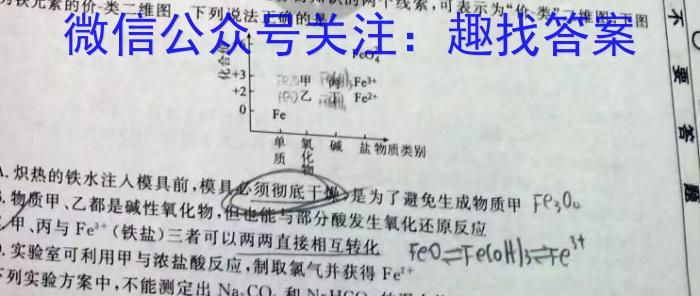 铁元素的价-类二维图
的两个线索，可表示为“价-类”二维图，下图
下列说法正确的是
微信公众号关注：趣找答案
FeO₄²⁻
+3 甲 丙 Fe³⁺
+2 FeO 乙 丁 Fe²⁺
0 Fe
单质 氧化物 碱 盐 物质类别
A. 炽热的铁水注入模具前，模具必须彻底干燥，是为了避免生成物质甲 Fe₃O₄
B. 物质甲、乙都是碱性氧化物，但也能与部分酸发生氧化还原反应
C. 甲、丙与 Fe³⁺（铁盐）三者可以两两直接相互转化
FeO⇌Fe(OH)₃⇌Fe³⁺
D. 实验室可利用甲与浓盐酸反应，制取氯气并获得 Fe²⁺
下列实验方案中，不能测定出 Na₂CO₃ 和 NaHCO₃
不要答题